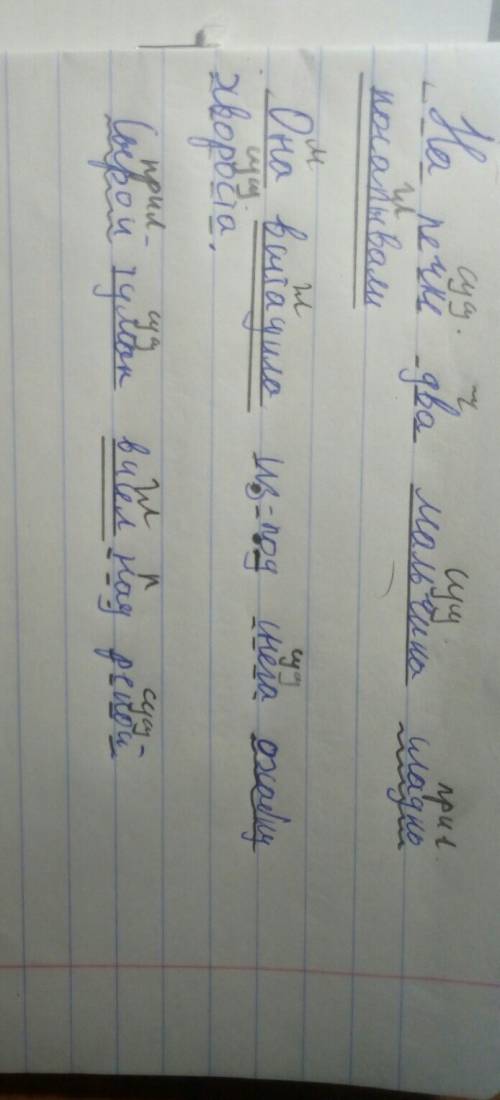 На печке два мальчика сладко
сущ. ч сущ. прил.
посапывали
гл
Она вытащила из-под снега охапку
м гл сущ
хвороста.
сущ.
Сырой туман висел над рекой.
прил. сущ гл п сущ